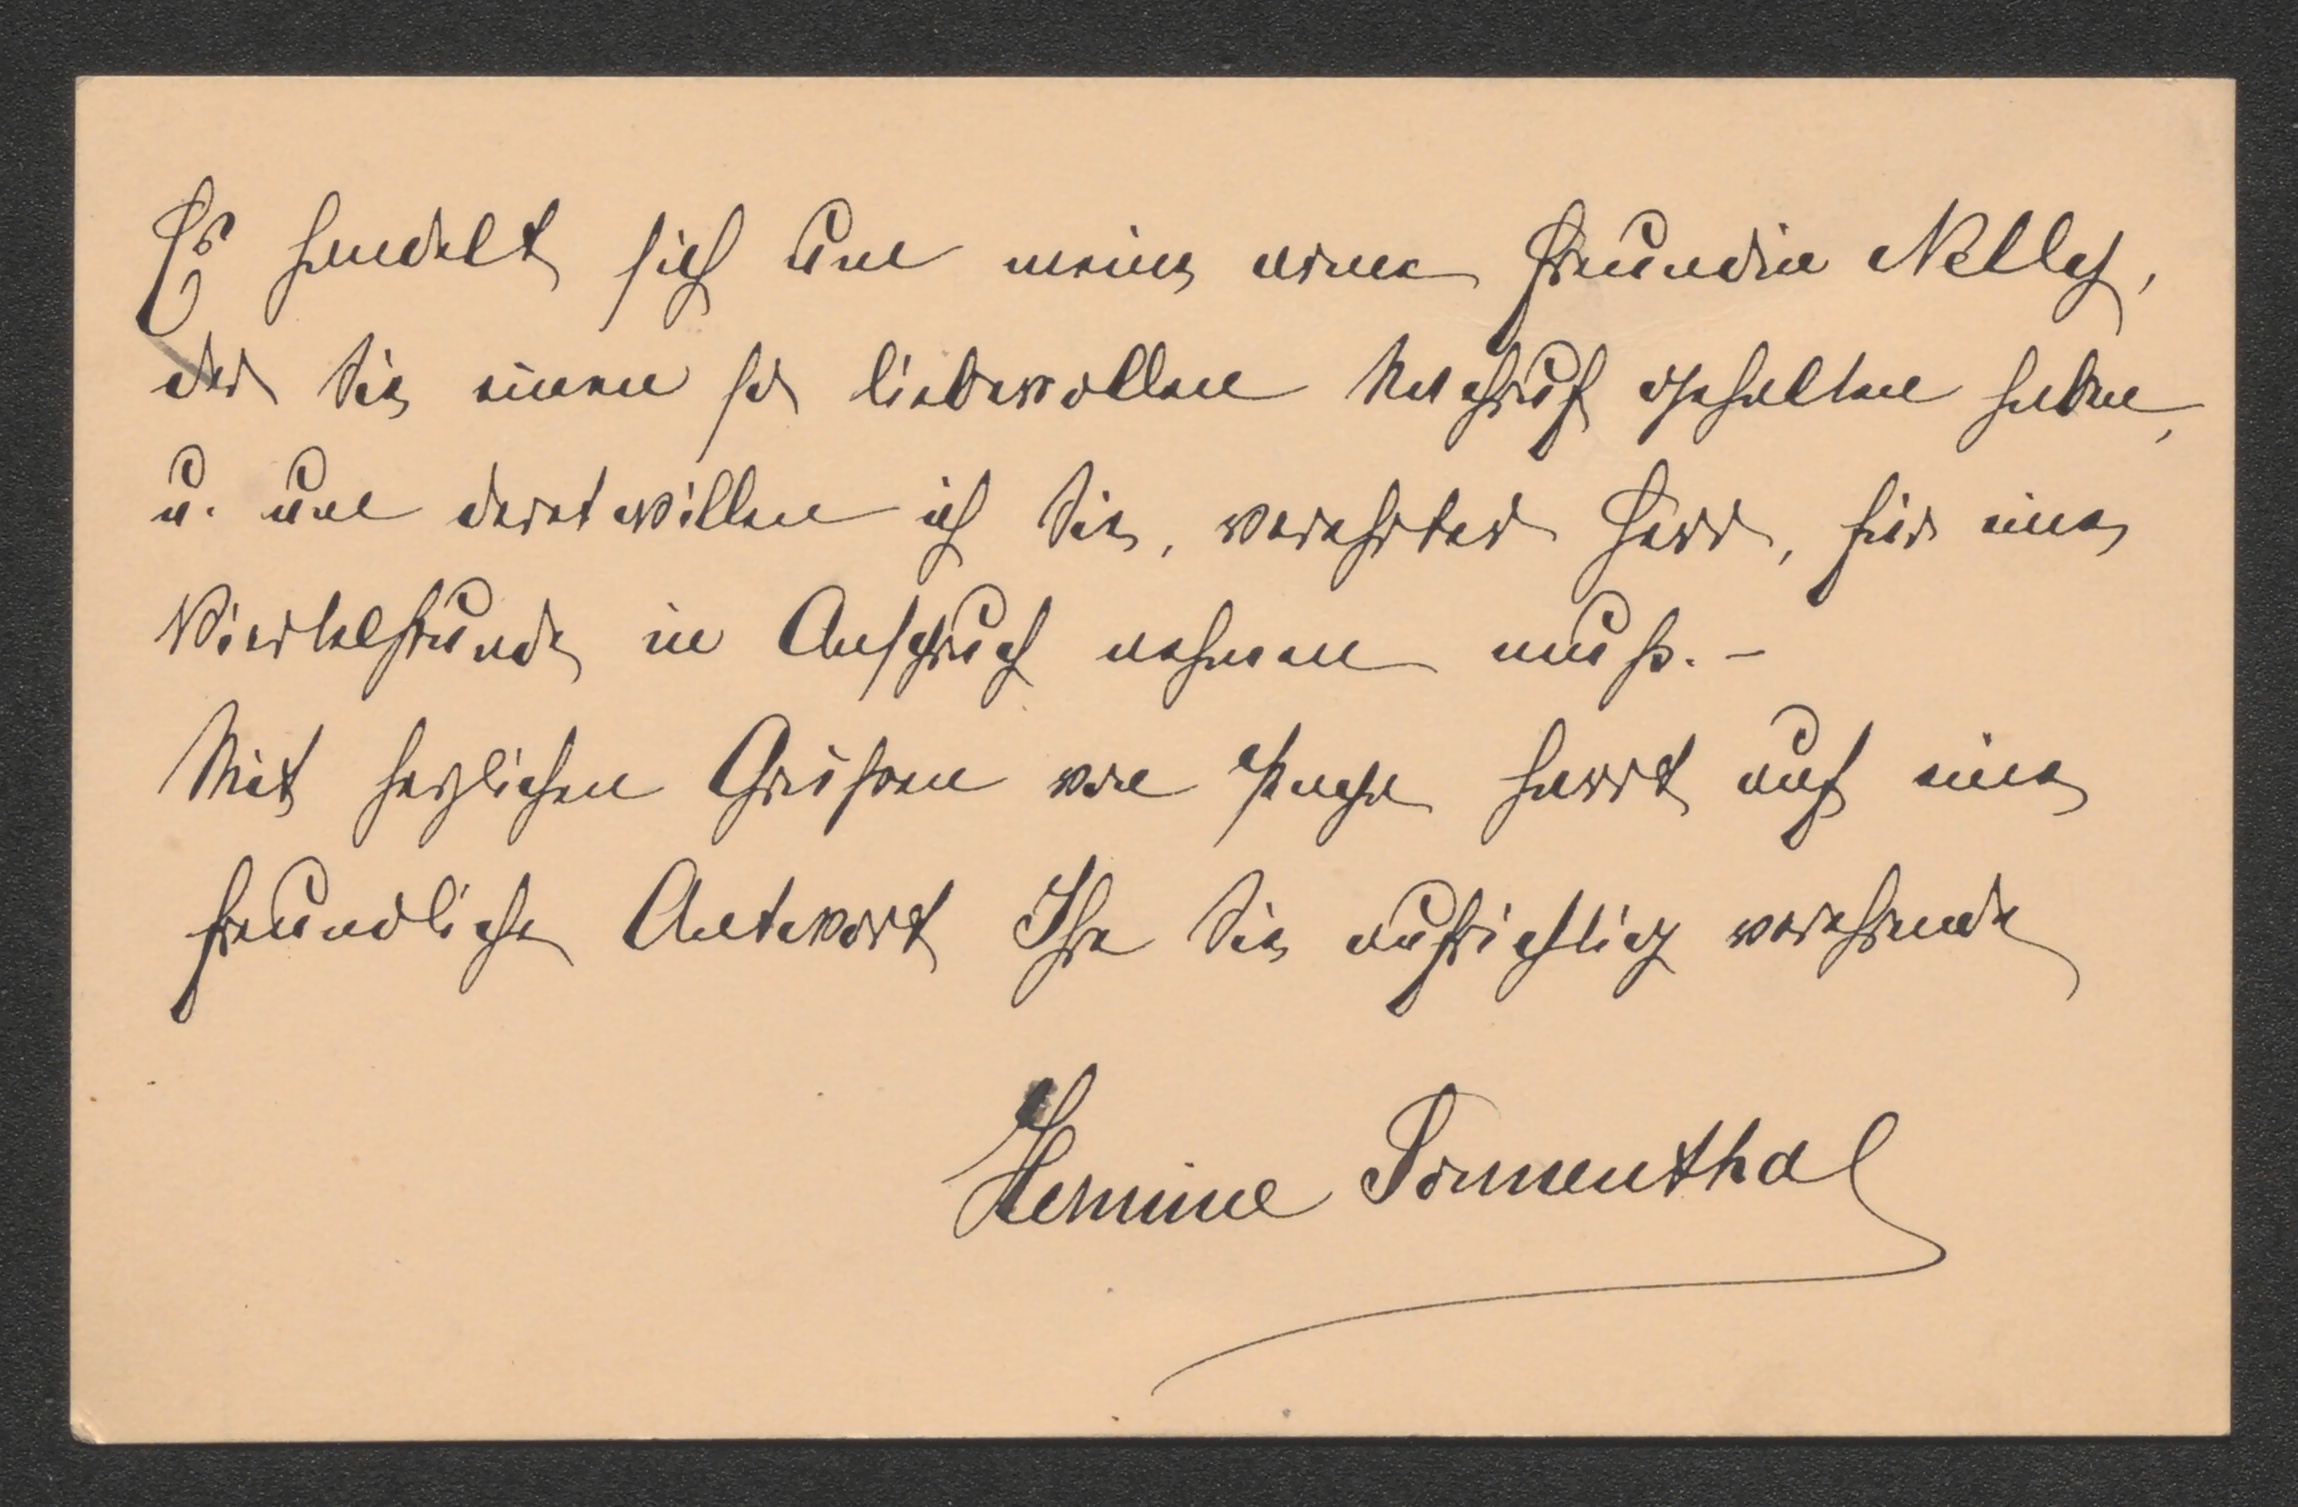 Es handelt sich um meine arme Freundin Nelly,
der Sie einen so liebevollen Nachruf gehalten haben,
u. um deretwillen ich Sie, verehrter Herr, für eine
Viertelstunde in Anspruch nehmen muß. –
Mit herzlichen Grüßen von Papa harrt auf eine
freundliche Antwort Ihre Sie aufrichtig verehrende
Hermine Sonnenthal